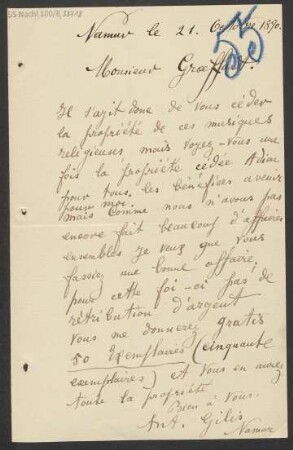 55 Nachl 100/B, 53718
55
Namur le 21. Octobre 1890.
Monsieur Graeffner.
Il s'agit donc de vous céder
la propriété de ces musiques
religieuses mais voyez-vous une
fois la propriété cédée Adieu
pour tous, les bénéfices avenir
pour moi.
Mais comme nous n'avons pas
encore fait beaucoup d'affaires
ensembles je veux que vous
fassiez une bonne affaire,
pour cette foi-ci pas de
rétribution d'argent
Vous me donnerez gratis
50 Exemplaires (cinquante
exemplaires) et vous en aurez
toute la propriété
Bien à vous.
Ant. Gilis
Namur